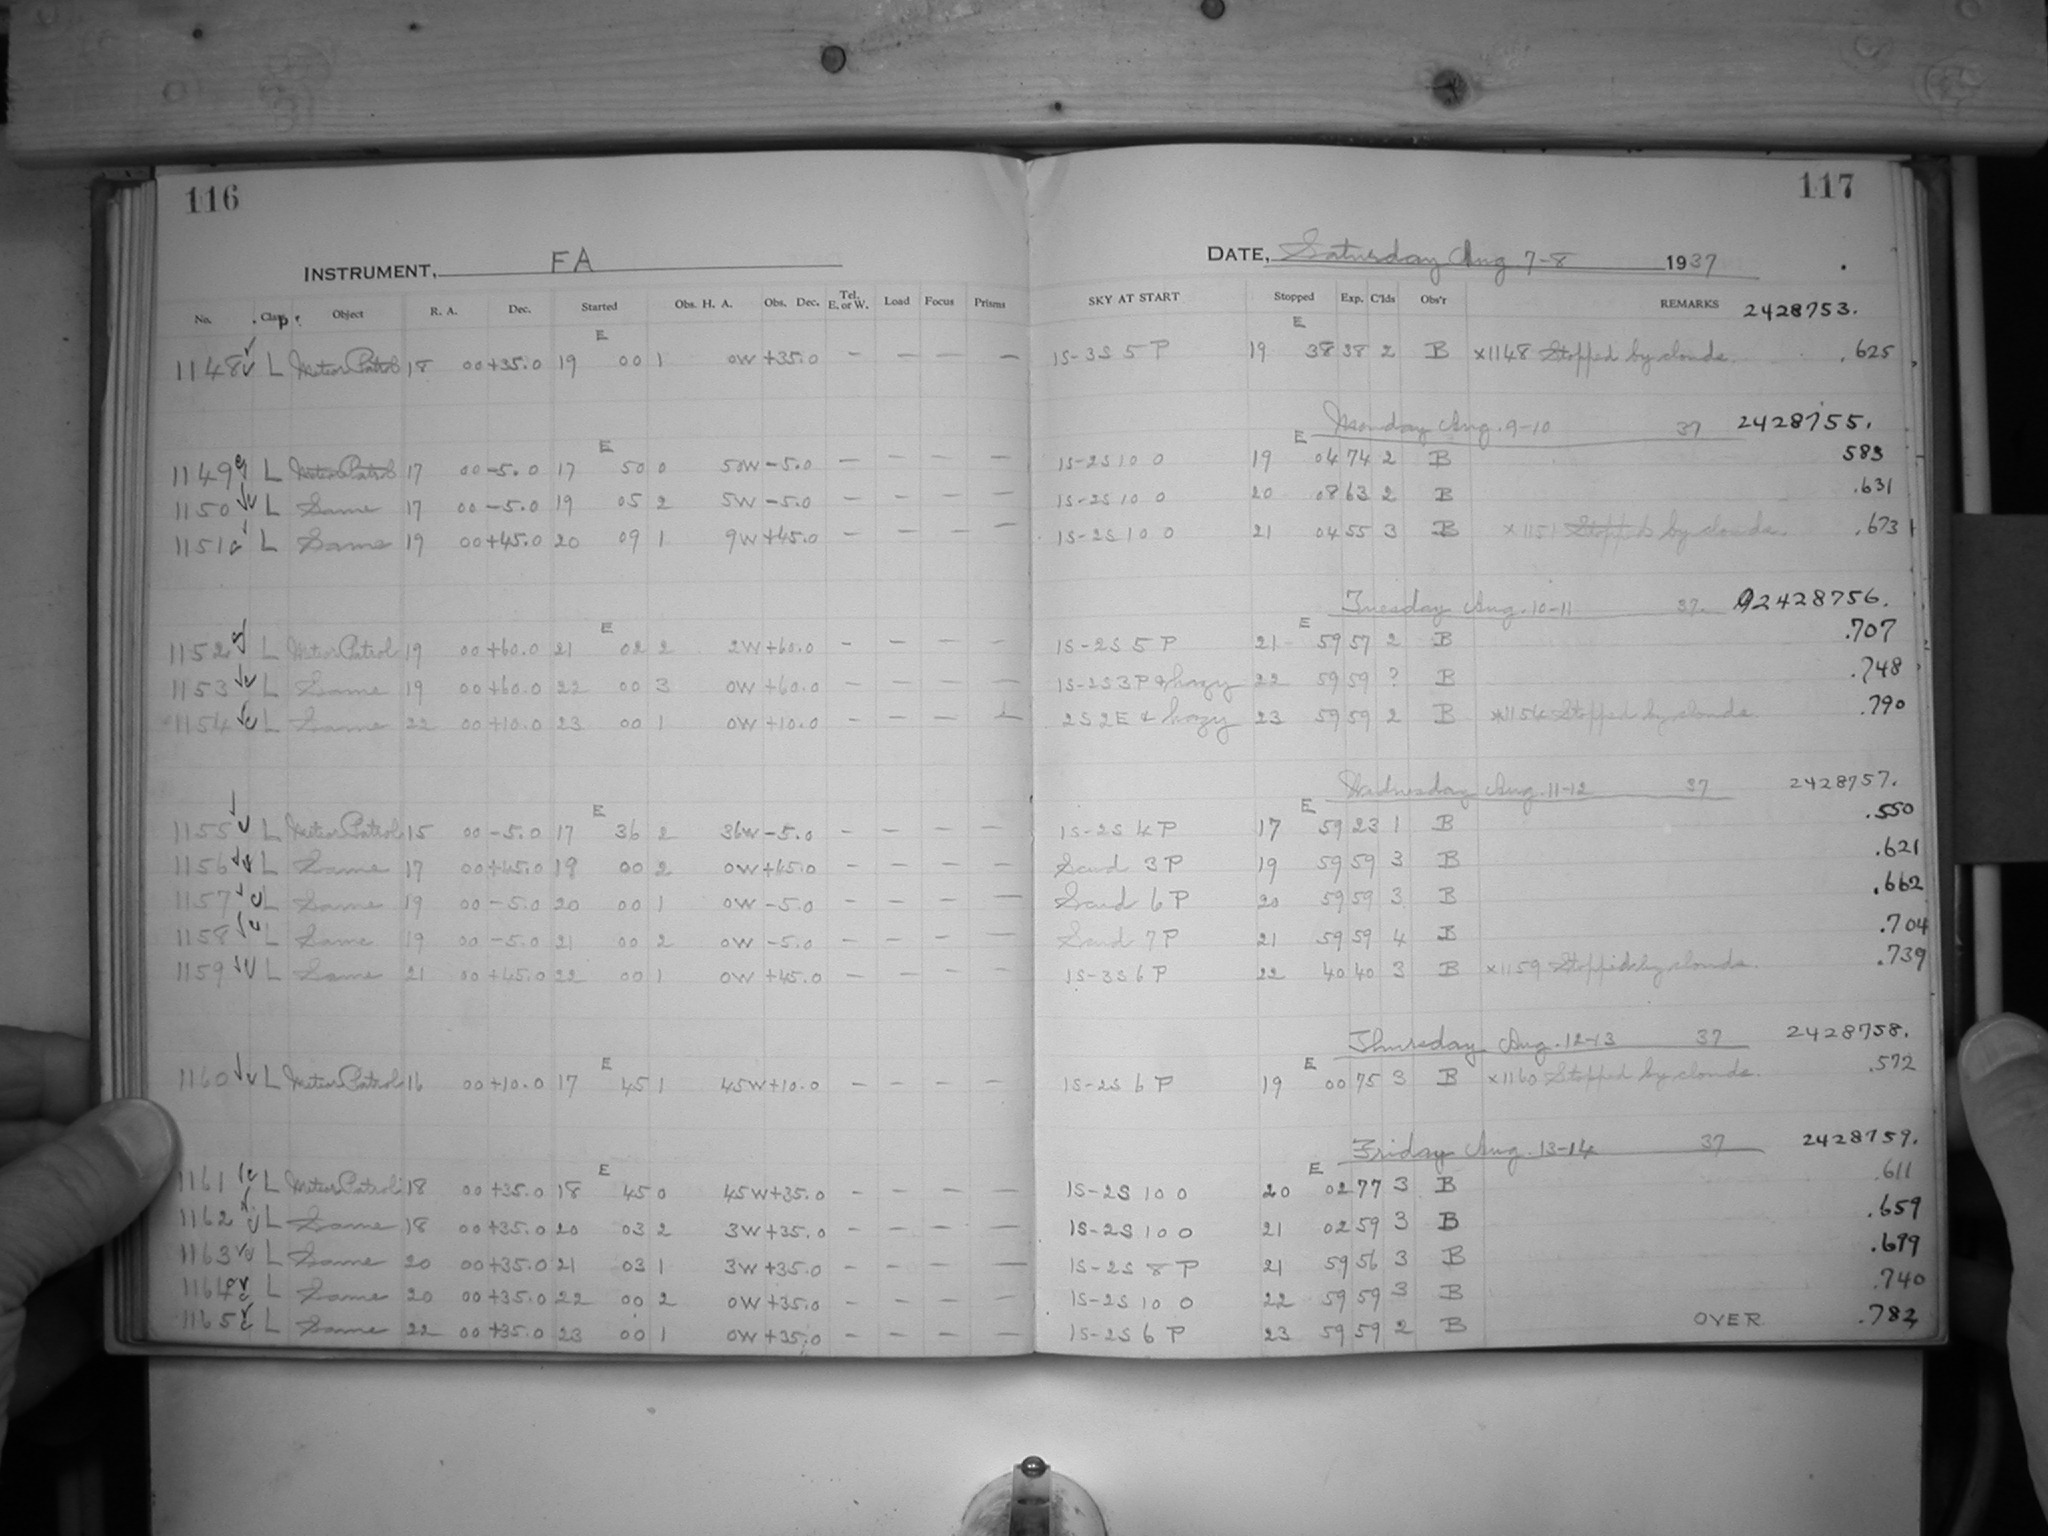 116
117
INSTRUMENT, FA
DATE, Saturday Aug 7-8 1937
No. Class Object R. A. Dec. Started Obs. H. A. Obs. Dec. Tel. E. or W. Load Focus Prisms SKY AT START Stopped Exp. C'lds Obs'r REMARKS 2428753.
E E
1148 L Meteor Patrol 18 00 +35.0 19 00 1 0W +35.0 — — — — 1S-3S 5 P 19 38 38 2 B x1148 Stopped by clouds. .625
Monday Aug. 9-10 37 2428755.
E E
1149 L Meteor Patrol 17 00 -5.0 17 50 0 50W -5.0 — — — — 1S-2S 10 0 19 04 74 2 B 583
1150 L Same 17 00 -5.0 19 05 2 5W -5.0 — — — — 1S-2S 10 0 20 08 63 2 B .631
1151 L Same 19 00 +45.0 20 09 1 9W +45.0 — — — — 1S-2S 10 0 21 04 55 3 B x1151 Stopped by clouds. .673
Tuesday Aug. 10-11 37. 2428756.
E E
1152 L Meteor Patrol 19 00 +60.0 21 02 2 2W +60.0 — — — — 1S-2S 5 P 21 59 57 2 B .707
1153 L Same 19 00 +60.0 22 00 3 0W +60.0 — — — — 1S-2S 3P & hazy 22 59 59 ? B .748
1154 L Same 22 00 +10.0 23 00 1 0W +10.0 — — — — 2S 2E & hazy 23 59 59 2 B x1154 Stopped by clouds. .790
Wednesday Aug. 11-12 37 2428757.
E E
1155 L Meteor Patrol 15 00 -5.0 17 36 2 36W -5.0 — — — — 1S-2S 4 P 17 59 23 1 B .550
1156 L Same 17 00 +45.0 19 00 2 0W +45.0 — — — — Scud 3 P 19 59 59 3 B .621
1157 L Same 19 00 -5.0 20 00 1 0W -5.0 — — — — Scud 6 P 20 59 59 3 B .662
1158 L Same 19 00 -5.0 21 00 2 0W -5.0 — — — — Scud 7 P 21 59 59 4 B .704
1159 L Same 21 00 +45.0 22 00 1 0W +45.0 — — — — 1S-3S 6 P 22 40 40 3 B x1159 Stopped by clouds. .739
Thursday Aug. 12-13 37 2428758.
E E
1160 L Meteor Patrol 16 00 +10.0 17 45 1 45W +10.0 — — — — 1S-2S 6 P 19 00 75 3 B x1160 Stopped by clouds. .572
Friday Aug. 13-14 37 2428759.
E E
1161 L Meteor Patrol 18 00 +35.0 18 45 0 45W +35.0 — — — — 1S-2S 10 0 20 02 77 3 B .611
1162 L Same 18 00 +35.0 20 03 2 3W +35.0 — — — — 1S-2S 10 0 21 02 59 3 B .659
1163 L Same 20 00 +35.0 21 03 1 3W +35.0 — — — — 1S-2S 8 P 21 59 56 3 B .699
1164 L Same 20 00 +35.0 22 00 2 0W +35.0 — — — — 1S-2S 10 0 22 59 59 3 B .740
1165 L Same 22 00 +35.0 23 00 1 0W +35.0 — — — — 1S-2S 6 P 23 59 59 2 B OVER .782